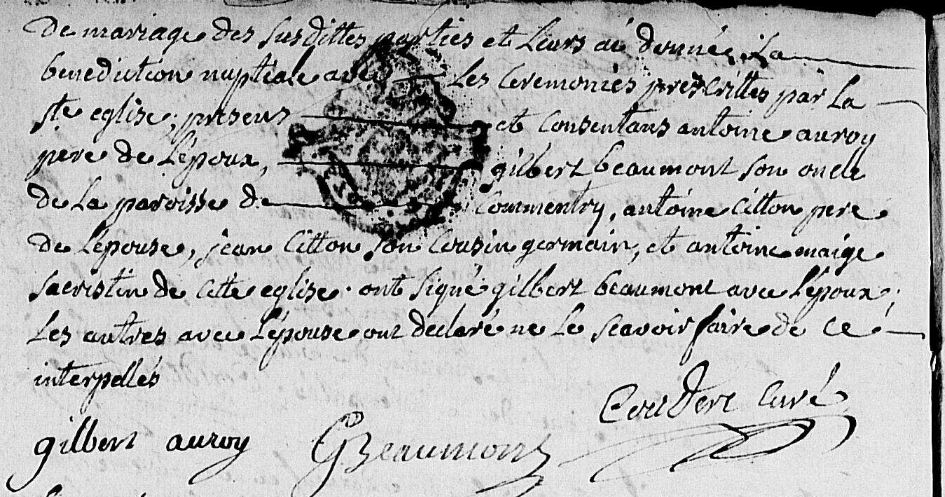 de mariage des susdittes parties et leurs ai donné La
benediction nuptiale avec Les Ceremonies prescrittes par La
ste eglise, presens et Consentans antoine auroy
pere de L'epoux, gilbert beaumont son oncle
de La paroisse de Commentry, antoine Citton pere
de L'epouse, jean Citton son Cousin germain, et antoine maige
sacristin de Cette eglise. ont signé gilbert beaumont avec L'epoux;
Les autres avec L'epouse ont declaré ne Le scavoir faire de Ce
interpellés
gilbert auroy GBeaumont Curé